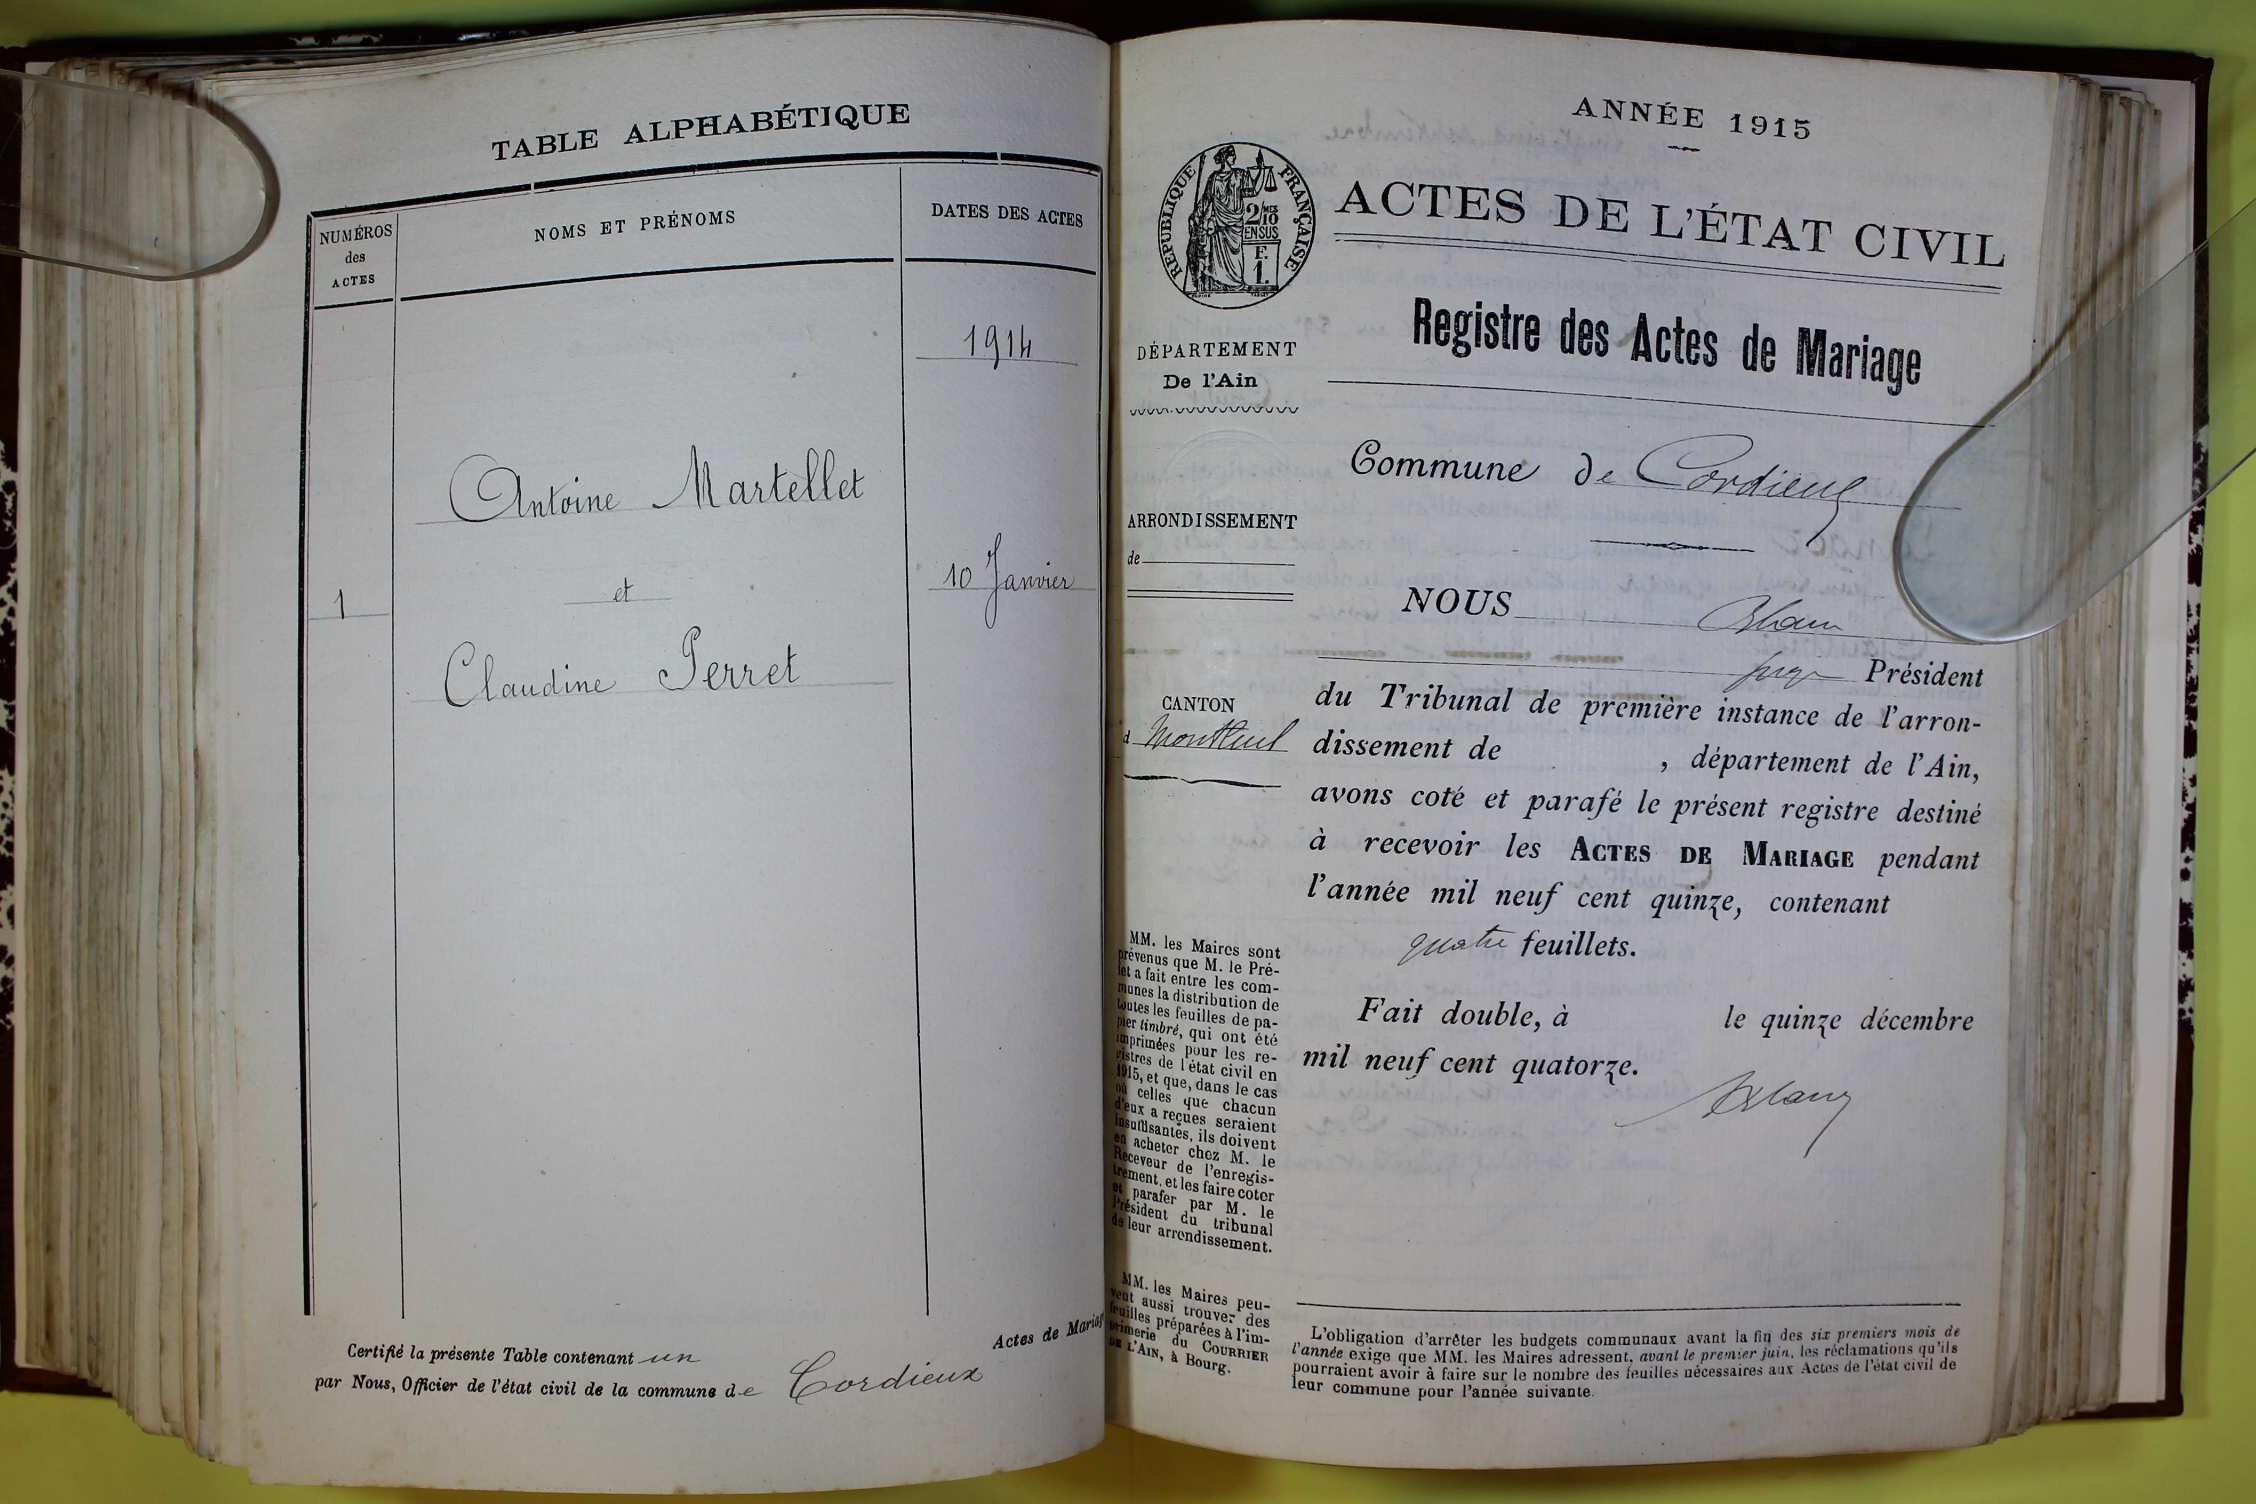 TABLE ALPHABÉTIQUE
NUMÉROS
des
ACTES
NOMS ET PRÉNOMS
DATES DES ACTES
1914
Antoine Martellet
1
et
10 Janvier
Claudine Perret
Certifié la présente Table contenant un
Actes de Mariag
par Nous, Officier de l'état civil de la commune de Cordieux
ANNÉE 1915
RÉPUBLIQUE FRANÇAISE
2/10 MES
EN SUS
F.
1.
ACTES DE L'ÉTAT CIVIL
Registre des Actes de Mariage
DÉPARTEMENT
De l'Ain
Commune de Cordieux
ARRONDISSEMENT
de
CANTON
d Montluel
NOUS
juge Président
du Tribunal de première instance de l'arron-
dissement de , département de l'Ain,
avons coté et parafé le présent registre destiné
à recevoir les ACTES DE MARIAGE pendant
l'année mil neuf cent quinze, contenant
quatre feuillets.
Fait double, à le quinze décembre
mil neuf cent quatorze.
MM. les Maires sont
prévenus que M. le Pré-
fet a fait entre les com-
munes la distribution de
toutes les feuilles de pa-
pier timbré, qui ont été
imprimées pour les re-
gistres de l'état civil en
1915, et que, dans le cas
où celles que chacun
d'eux a reçues seraient
insuffisantes, ils doivent
en acheter chez M. le
Receveur de l'enregis-
trement, et les faire coter
et parafer par M. le
Président du tribunal
de leur arrondissement.
MM. les Maires peu-
vent aussi trouver des
feuilles préparées à l'im-
primerie du COURRIER
DE L'AIN, à Bourg.
L'obligation d'arrêter les budgets communaux avant la fin des six premiers mois de
l'année exige que MM. les Maires adressent, avant le premier juin, les réclamations qu'ils
pourraient avoir à faire sur le nombre des feuilles nécessaires aux Actes de l'état civil de
leur commune pour l'année suivante.